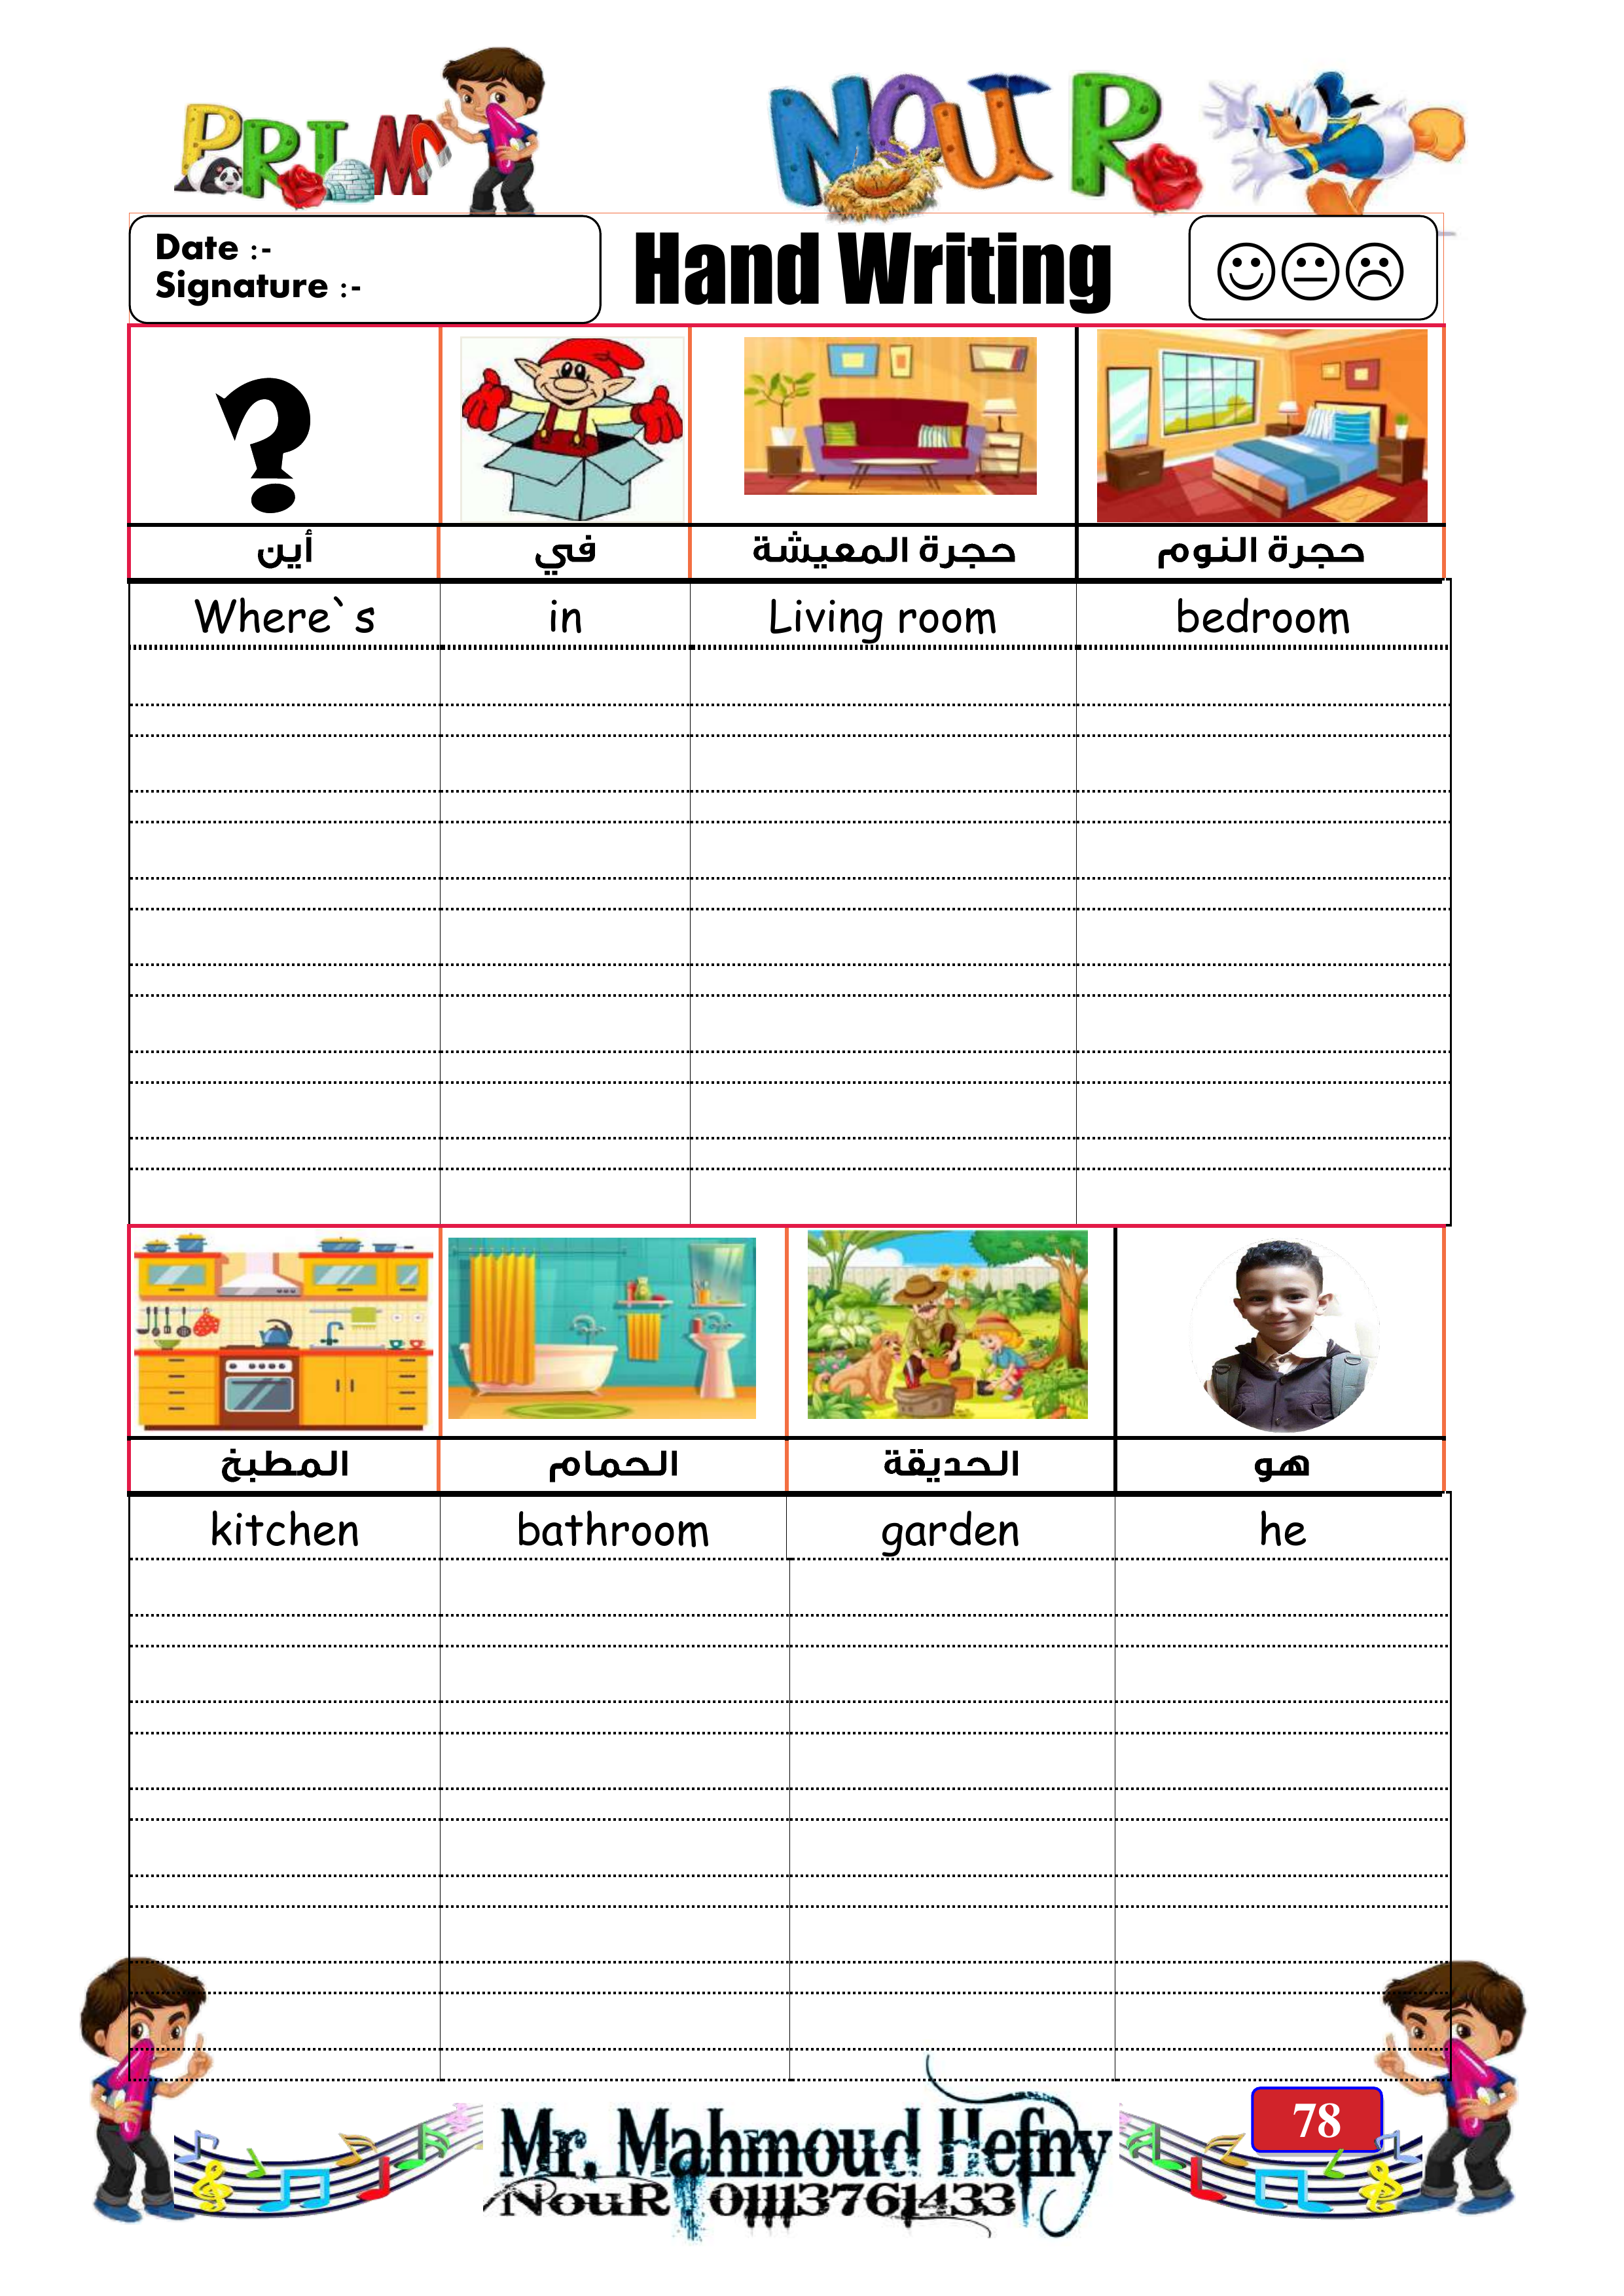 PRIM 1
NOUR
Date :-
Signature :-
Hand Writing
أين في حجرة المعيشة حجرة النوم
Where`s in Living room bedroom
المطبخ الحمام الحديقة هو
kitchen bathroom garden he
78
Mr. Mahmoud Hefny
NouR . 01113761433